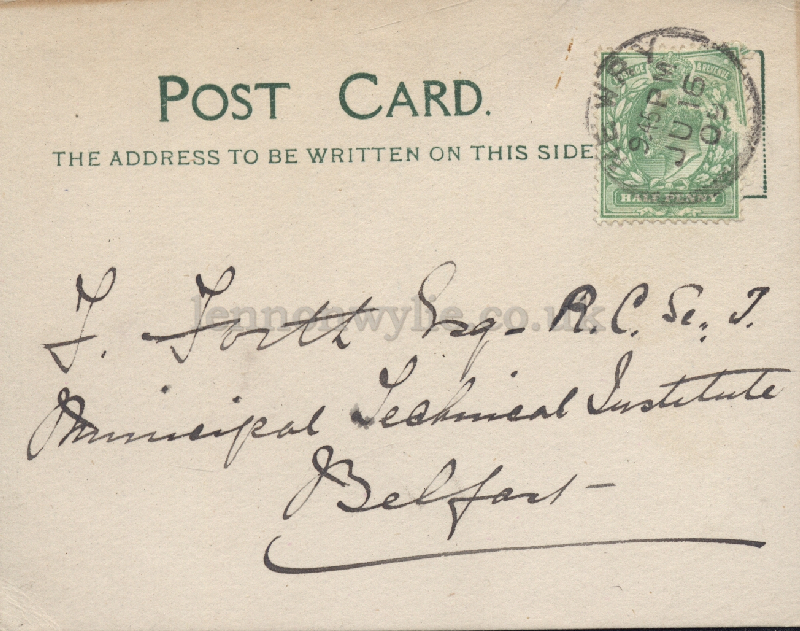 POST CARD.
THE ADDRESS TO BE WRITTEN ON THIS SIDE
NEWRY
9.45 PM
JU 16
05
HALFPENNY
lennonwylie.co.uk
F. Forth Esq- R.C. Sc. I.
Municipal Technical Institute
Belfast